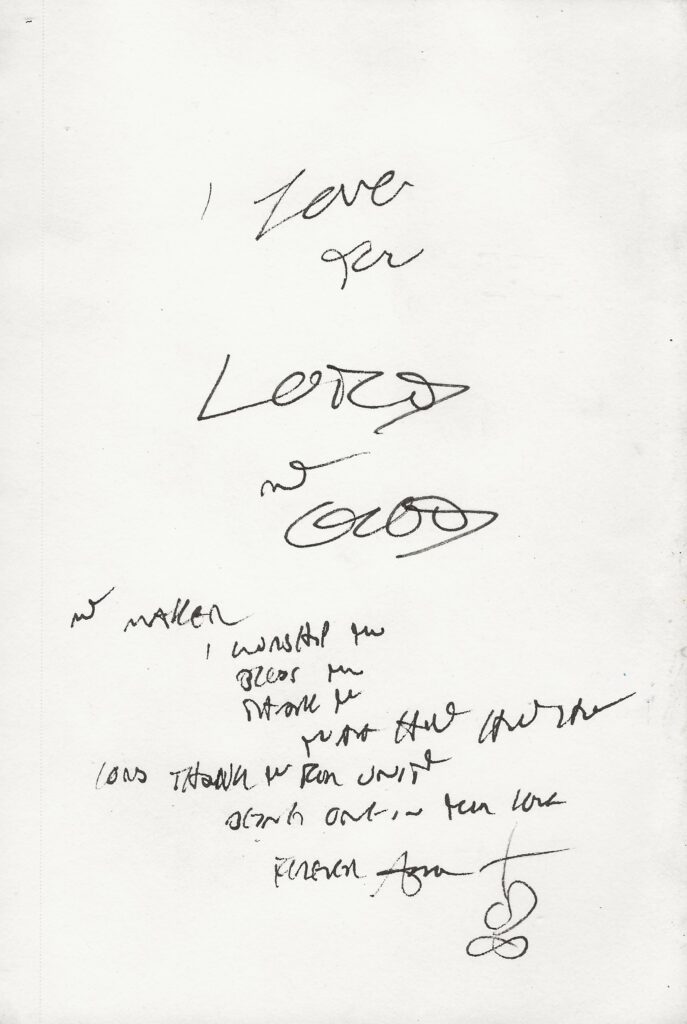 I Love
You
LORD
my
GOD
my MAKER
I WORSHIP YOU
BLESS YOU
THANK YOU
YOU ARE HOLY HOLY HOLY
LORD THANK YOU FOR UNITY
BEING ONE IN YOUR LOVE
FOREVER Amen